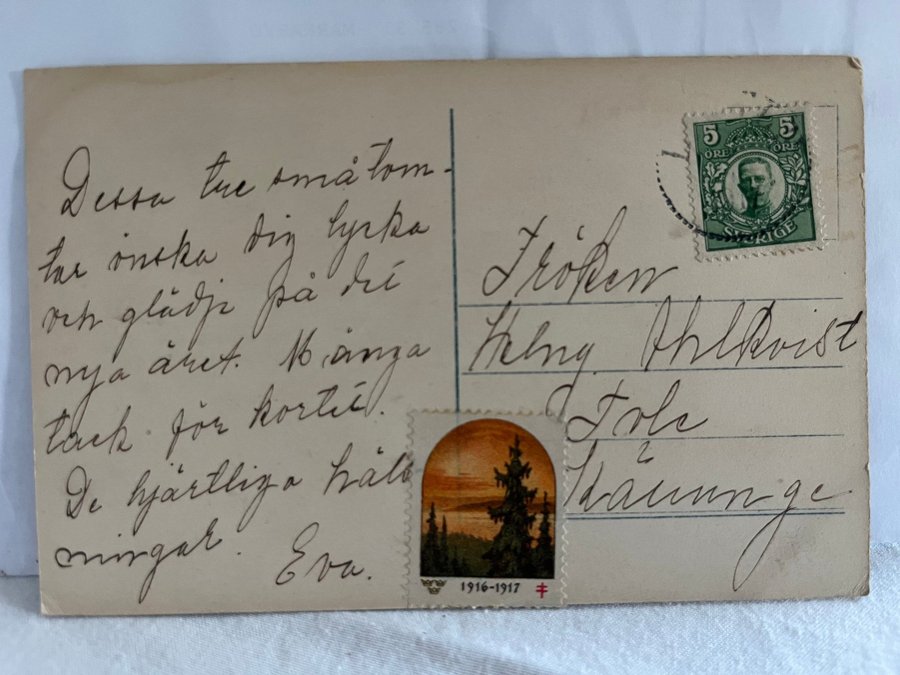 Dessa tre små tom-
tar önska dig lycka
och glädje på det
nya året. Många
tack för kortet.
De hjärtliga häls
ningar.
Eva.
5 5
ÖRE ÖRE
SVERIGE
Fröken
Helny. Ahlkvist
Tole
1916-1917